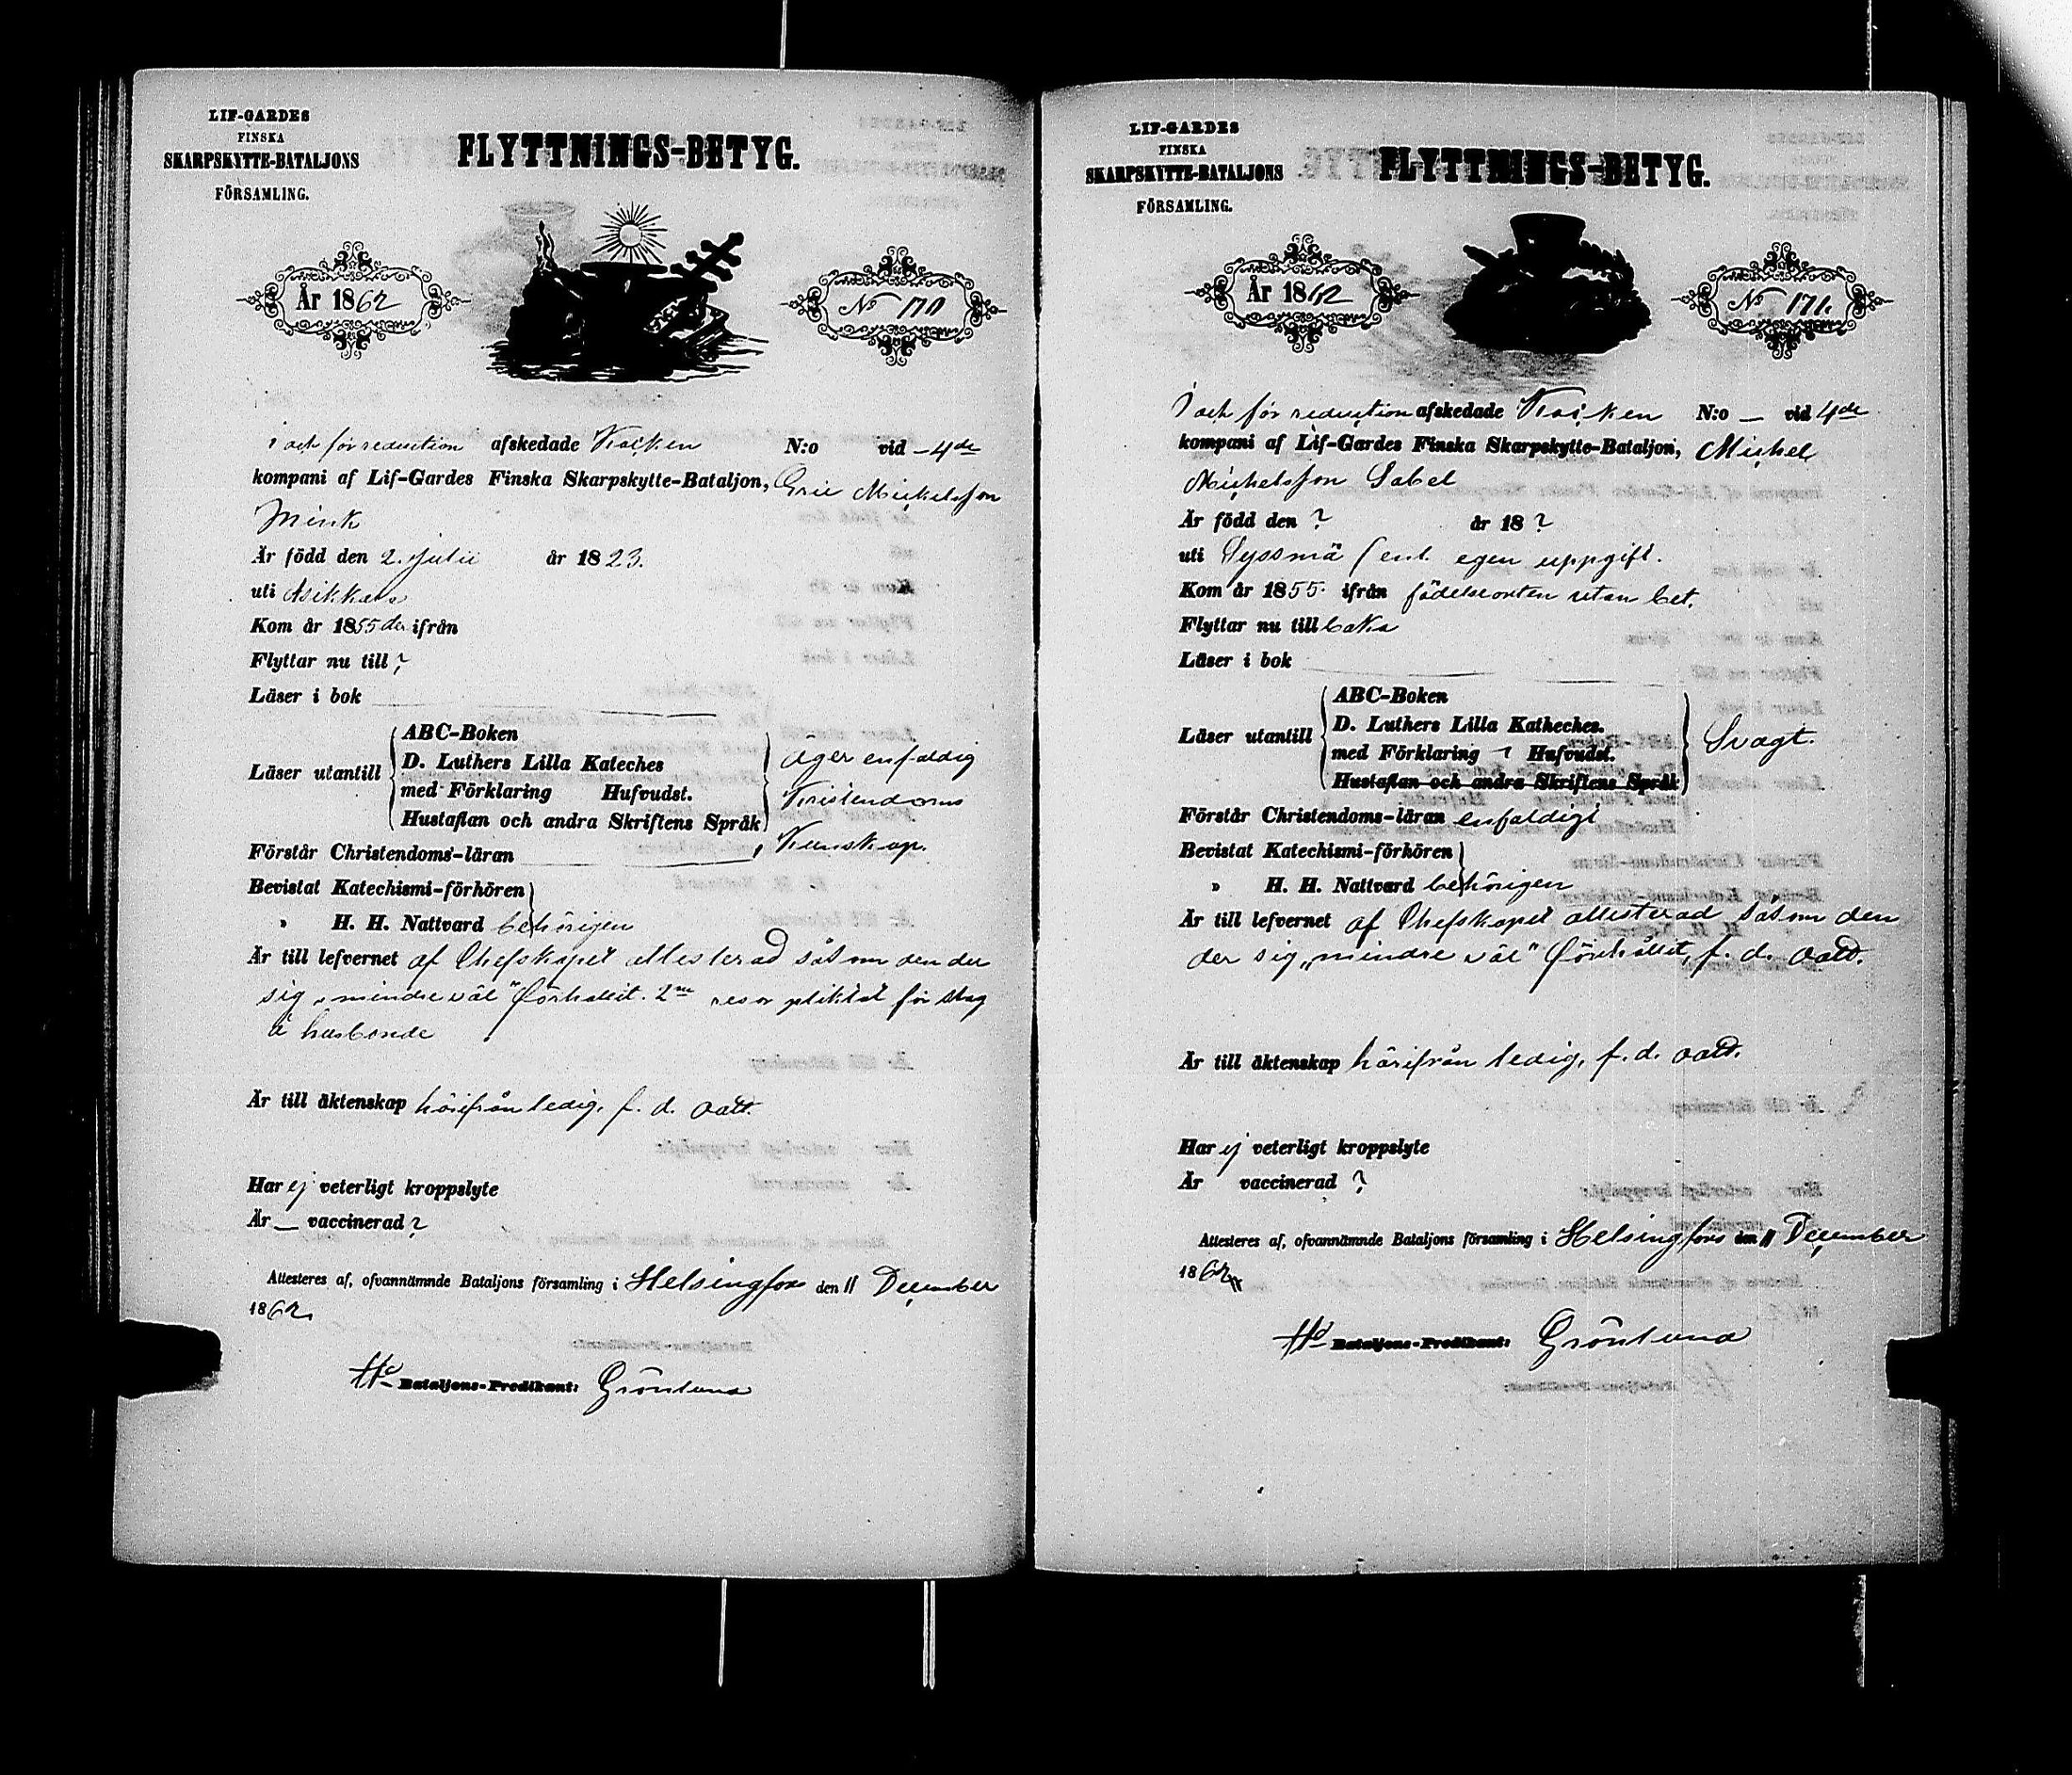 LIF-GARDES
FINSKA
SKARPSKYTTE-BATALJONS
FÖRSAMLING.
FLYTTNINGS-BETYG.
År 1862
No 170
i och för reduction afskedade N:o vid - 4de
kompani af Lif-Gardes Finska Skarpskytte-Bataljon, Eric Michelsson
Mink
Är född den 2. Julii år 1823.
uti Asikkala
Kom år 1855 der ifrån
Flyttar nu till ?
Läser i bok
Läser utantill
ABC-Boken
D. Luthers Lilla Kateches
med Förklaring Hufvudst.
Hustaflan och andra Skriftens Språk
äger enfaldig
Kristendoms
Kunskap.
Förstår Christendoms-läran
Bevistat Katechismi-förhören
" H. H. Nattvard behörigen
Är till lefvernet af Chefskapet attesterad såsom den der
sig "mindre väl" förhållit. 2ne resor pliktat för stag
å husbonde
Är till äktenskap härifrån ledig, f. d. oaltd.
Har ej veterligt kroppslyte
Är — vaccinerad ?
Attesteras af, ofvannämnde Bataljons församling i Helsingfors den 11 December
1862.
Bataljons-Predikant: Grönlund
LIF-GARDES
FINSKA
SKARPSKYTTE-BATALJONS
FÖRSAMLING.
FLYTTNINGS-BETYG.
År 1862
No 171.
I och för reduction afskedade N:o — vid 4de
kompani af Lif-Gardes Finska Skarpskytte-Bataljon, Michel
Michelsson Sabel
Är född den ? år 18 ?
uti Syssmä (enl. egen uppgift.
Kom år 1855. ifrån födelseorten utan bet.
Flyttar nu till baka
Läser i bok
Läser utantill
ABC-Boken
D. Luthers Lilla Katheches.
med Förklaring Hufvudst.
Hustaflan och andra Skriftens Språk
Svagt.
Förstår Christendoms-läran enfaldigt
Bevistat Katechismi-förhören
" H. H. Nattvard behörigen
Är till lefvernet af Chefskapet attesterad såsom den
der sig "mindre väl" förhållit, f. d. oaltd.
Är till äktenskap härifrån ledig, f. d. oaltd.
Har ej veterligt kroppslyte
Är vaccinerad ?
Attesteras af, ofvannämnde Bataljons församling i Helsingfors den 11 December
1862
Bataljons-Predikant: Grönlund